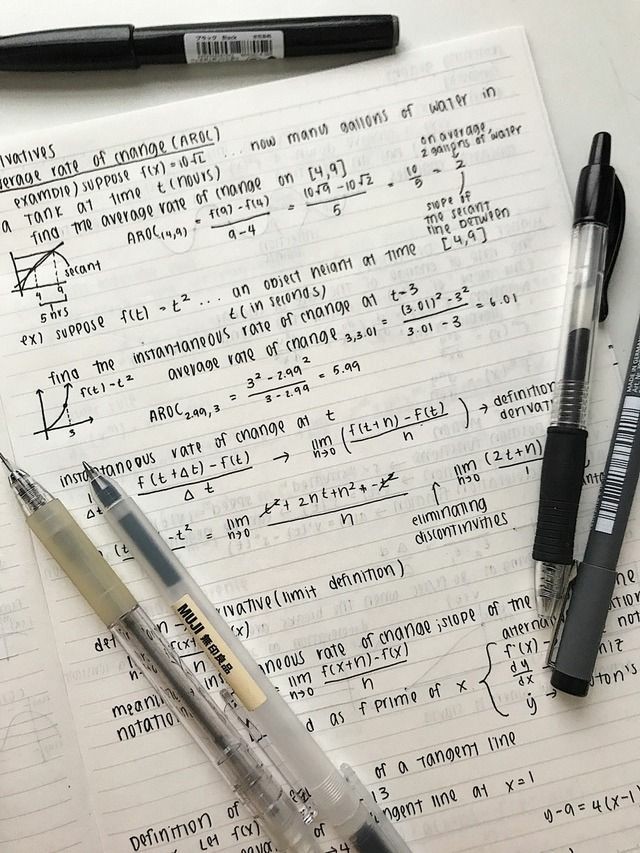 ブラック Black
ivatives
verage rate of change (AROC)
example) suppose f(x) = 10√t ... now many gallons of water in
a tank at time t (hours)
find the average rate of change on [4,9]
AROC(4,9) = f(9) - f(4) / 9-4 = 10√9 - 10√2 / 5 = 10/5 = 2
on average,
2 gallons of water
slope of
the secant
line between
[4,9]
secant
4 9
5 hrs
ex) suppose f(t) = t² ... an object height at time
t (in seconds)
find the instantaneous rate of change at t=3
average rate of change 3,3.01 = (3.01)² - 3² / 3.01 - 3 = 6.01
f(t)-t²
3
AROC 2.99,3 = 3² - 2.99² / 3 - 2.99 = 5.99
instantaneous rate of change at t
f(t+Δt) - f(t) / Δt → lim n→0 (f(t+n) - f(t) / n) → definition
derivat
Δt
-t² = lim n→0 t² + 2nt + n² + -t² / n
lim n→0 (2t+n) / 1
↑
eliminating
discontinuities
rivative (limit definition)
neous rate of change; slope of the
meanin
notatio
= lim n→0 f(x+n) - f(x) / n
d as f prime of x
f'(x)
dy/dx
ẏ →
niz
ton's
MUJI 無印良品
of a tangent line
Definition of
13
Let f(x)
ngent line at x=1
y-9 = 4(x-1)